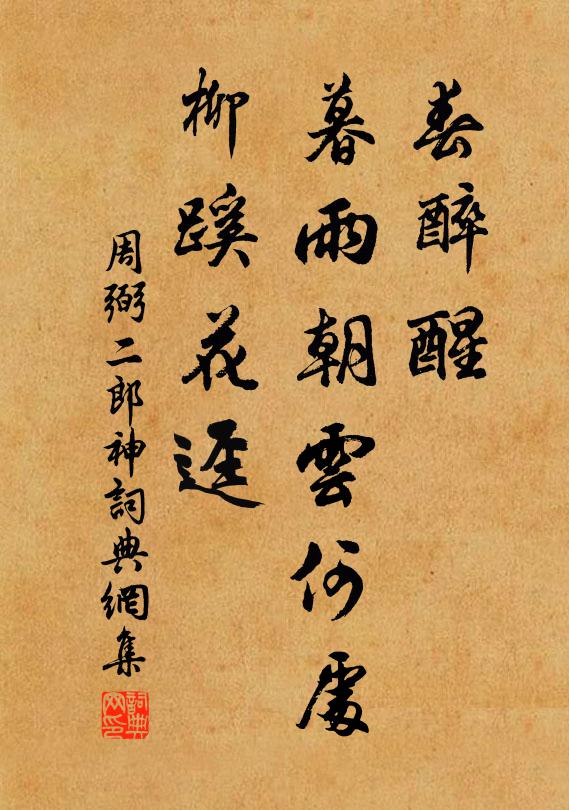 春醉醒
暮雨朝雲何處
柳蹊花逕
周弼二郎神詞典網集
詞典
网印